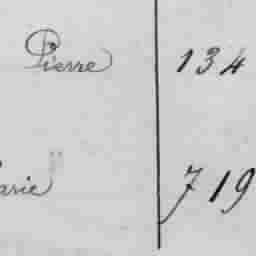 Pierre 134
arie " 719